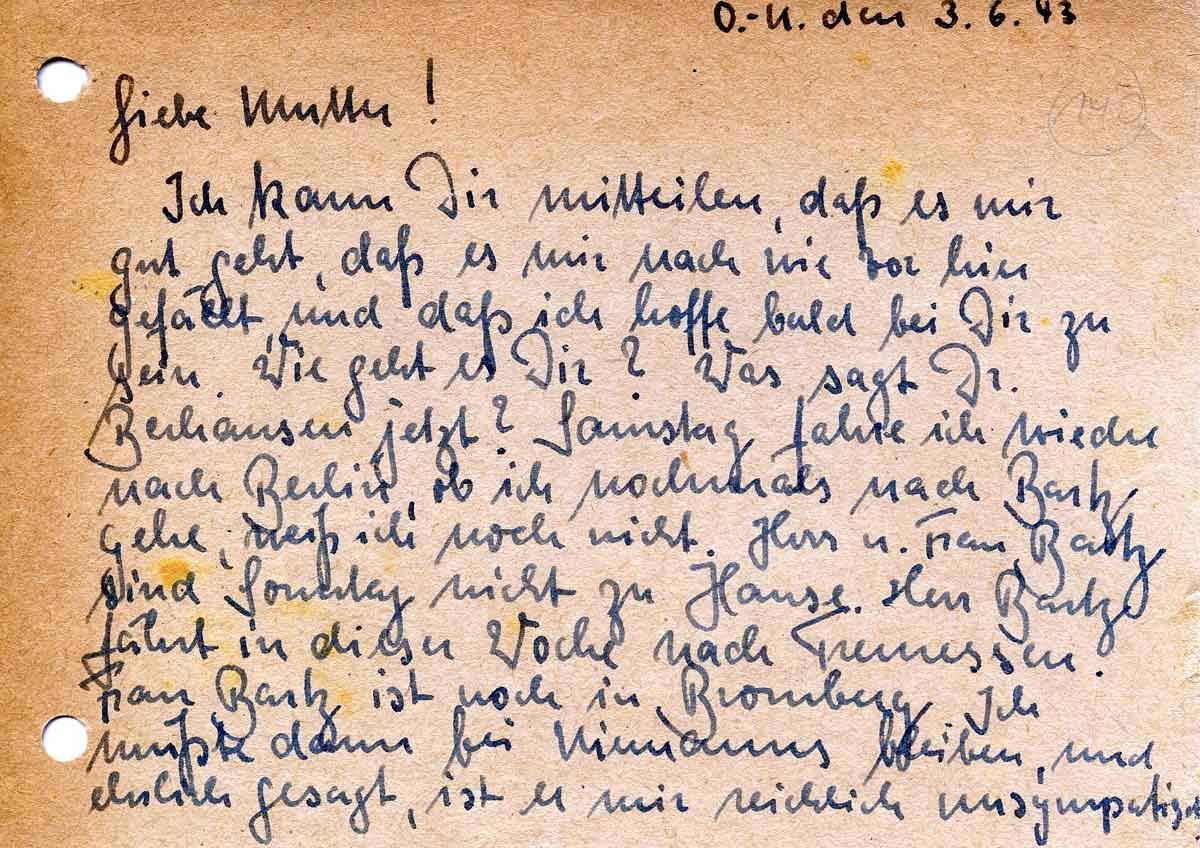 O.-U. den 3.6.43
Liebe Mutter!
Ich kann Dir mitteilen, daß es mir
gut geht, daß es mir nach wie vor hier
gefällt, und daß ich hoffe bald bei Dir zu
sein. Wie geht es Dir? Was sagt Dr.
jetzt? Samstag fahre ich wieder
nach Berlin, ob ich nochmals nach Bartz
gehe, weiß ich noch nicht. Herr u. Frau Bartz
sind Sonntag nicht zu Hause. Herr Bartz
fährt in dieser Woche nach Tremessen.
Frau Bartz ist noch in Bromberg. Ich
mußte dann bei Niemanns bleiben, und
ehrlich gesagt, ist er mir reichlich unsympatisch